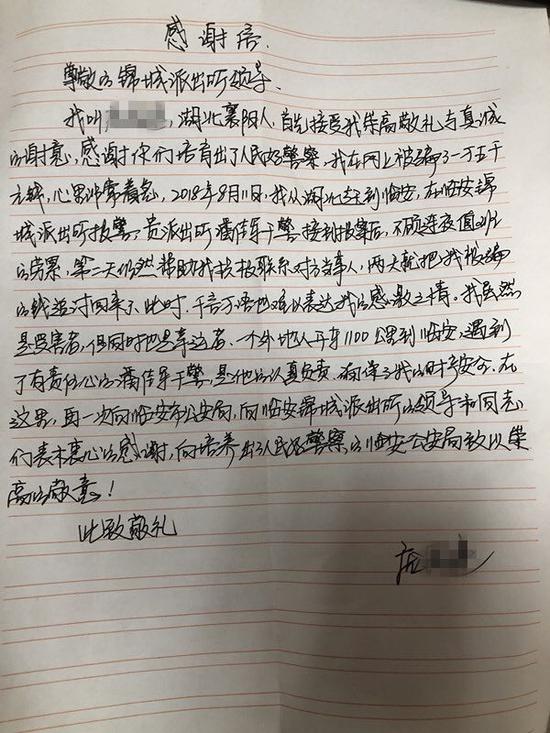 感谢信.
尊敬的锦城派出所领导.
我叫 ，湖北襄阳人，首先接受我崇高敬礼与真诚
的谢意，感谢你们培育出了人民好警察，我在网上被骗了一万五千
元钱，心里非常着急，2018年8月11日，我从湖北赶到临安，在临安锦
城派出所报警，贵派出所潘佳乐干警接到报案后，不顾连夜值班
的劳累，第二天仍然帮助我找报联系对方当事人，两天就把我被骗
的钱追讨回来了此时，千言万语也难以表达我的感激之情。我虽然
是受害者，但同时也是幸运者．一个外地人开车1100公里到临安，遇到
了有责任心的潘佳乐干警，是他的认真负责，确保了我的财产安全．在
这里，再一次向临安市公安局，向临安锦城派出所的领导和同志
们表示衷心的感谢，向培养出了人民好警察的临安公安局致以崇
高的敬意！
此致敬礼